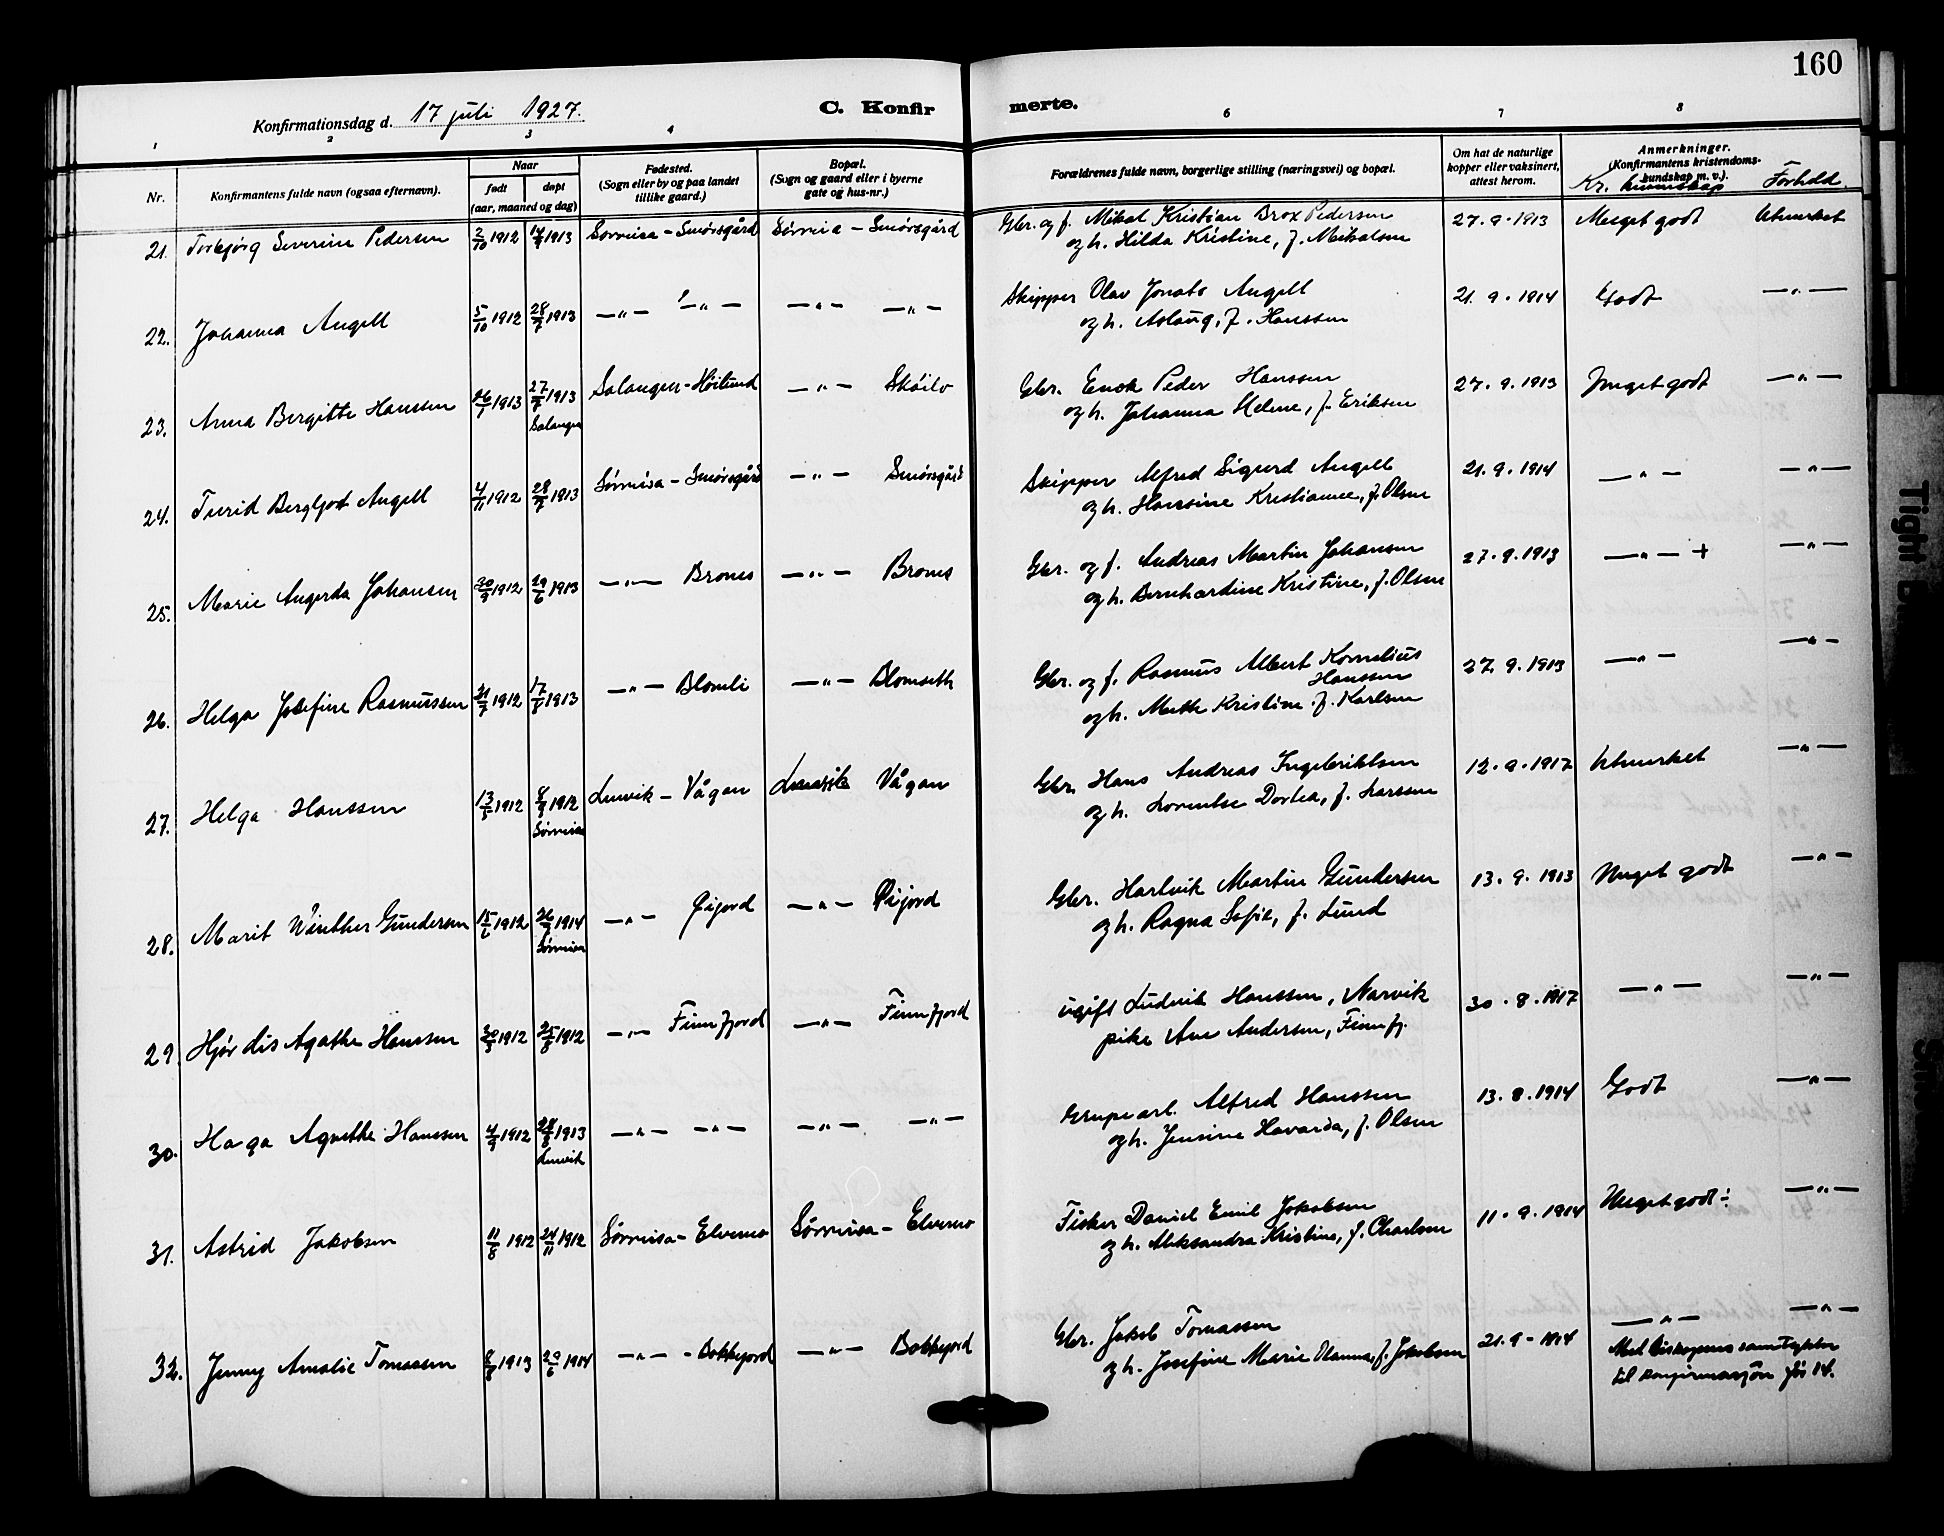 160
Konfirmationsdag d. 17 juli 1927.
C. Konfir merte.
1 2 3 4 6 7 8
Nr.
Konfirmantens fulde navn (ogsaa efternavn).
Naar
født døpt
(aar, maaned og dag)
Fødested.
(Sogn eller by og paa landet
tillike gaard.)
Bopæl.
(Sogn og gaard eller i byerne
gate og hus-nr.)
Forældrenes fulde navn, borgerlige stilling (næringsvei) og bopæl.
Om hat de naturlige
kopper eller vaksinert,
attest herom.
Anmerkninger.
(Konfirmantens kristendoms-
kundskap m. v.).
Kr. kunnskap Forhold.
21. Torbjørg Severine Pedersen 2/10 1912 1913 Sørreisa - Smørsgård Sørreisa - Smørsgård Gbr. og f. Mikal Kristian Brox Pedersen 27.9.1913 Meget godt Utmerket
og h. Hilda Kristine, f. Mikalsen
22. Johanna Angell 5/10 1912 28/7 1913 —"— —"— —"— —"— Skipper Olav Jonats Angell 21.9.1914 Godt —"—
og h. Aslaug, f. Hanssen
23. Anna Bergitte Hanssen 26/1 1913 27/7 1913 Salangen - Høilund —"— Skøilv Gbr. Enok Peder Hanssen 27.9.1913 Meget godt —"—
Salangen og h. Johanna Helene, f. Eriksen
24. Turid Bergljot Angell 4/11 1912 28/7 1913 Sørreisa - Smørsgård —"— Smørsgård Skipper Alfred Sigurd Angell 21.9.1914 —"— —"—
og h. Hansine Kristianne, f. Olsen
25. Marie Angerda Johansen 20/9 1912 29/6 1913 —"— Brones —"— Brones Gbr. og f. Andreas Martin Johansen 27.9.1913 —"— + —"—
og h. Bernhardine Kristine, f. Olsen
26. Helga Josefine Rasmussen 31/7 1912 17/8 1913 —"— Blomli —"— Blomseth Gbr. og f. Rasmus Albert Kornelius 27.9.1913 —"— —"—
Hanssen
og h. Meth Kristine f. Karlsen
27. Helga Hanssen 13/5 1912 8/9 1912 Lenvik - Vågan Lenvik Vågan Gbr. Hans Andreas Ingebriktsen 12.9.1917 Utmerket —"—
Sørreisa og h. Lorentse Dortea, f. Larssen
28. Marit Winther Gundersen 15/6 1912 26/7 1914 —"— Øijord —"— Øijord Gbr. Hartvik Martin Gundersen 13.9.1913 Meget godt —"—
Sørreisa og h. Ragna Sofie, f. Lund
29. Hjørdis Agathe Hanssen 30/3 1912 25/8 1912 —"— Finnfjord —"— Finnfjord ugift Ludvik Hanssen, Narvik 30.8.1917 —"— —"—
pike Ane Andersen, Finnfj.
30. Haga Agnethe Hanssen 4/9 1912 28/8 1913 —"— —"— —"— —"— Grupearb. Alfred Hanssen 13.8.1914 Godt —"—
Lenvik og h. Jensine Havarda, f. Olsen
31. Astrid Jakobsen 11/8 1912 24/11 1912 Sørreisa - Elvemo Sørreisa - Elvemo Fisker Daniel Emil Jakobsen 11.9.1914 Meget godt ÷ —"—
og h. Aleksandra Kristine, f. Charlsen
32. Jenny Amalie Tomassen 8/8 1913 29/6 1914 —"— - Bokkfjord —"— Bokkfjord Gbr. Jakob Tomassen 21.9-1914 —"— —"—
og h. Josefine Marie Olanna, f. Jakobsen Med biskopens samtykke
til konfirmasjon før 14.